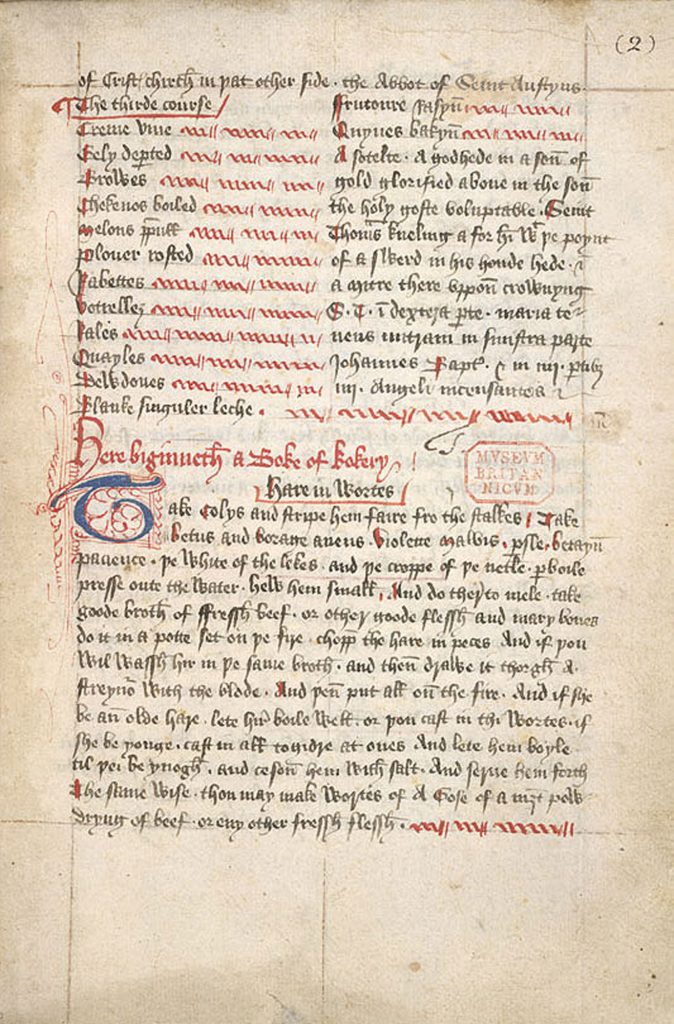 (2)
of Crist chirch in þat other side · the Abbot of Seint Austyns
The thirde course
Creme vine
Cely depted
Browes
Chekenos boiled
Melons
Plover rosted
Rabettes
botrellez
Rales
Quayles
Dew doues
Blanke singuler leche ·
frutoure fasyn
Quynes bakyn
A sotelte · A godhede in a son of
gold glorified aboue in the son
the holy goste voluptable · Seint
Thomas kneling a for him wt þe poynt
of a swerd in his honde hede · &
a mitre there vppon crownyng
S · T · i dextera pte · maria te
nens intram in sinistra parte
Johannes Bapt · & in iiii · ptibz
iiii · Angeli incensantes &
Here biginneth a Boke of Kokery
MVSEVM
BRITAN
NICVM
Hare in Wortes
Take Colys and stripe hem faire fro the stalkes · Take
betus and borage auens · Violette Malvis · psle · betayn
pacience · þe white of the lekes · and þe croppe of þe netle · pboile
presse oute the water · hew hem small · And do therto mele · take
goode broth of ffressh beef · or other goode flessh and mary bones
do it in a potte set on þe fire · chopp the hare in peces And if þou
wil wassh hir in þe same broth · and then drawe it thorgh A
streynor with the blode · And þen put all on the fire · And if she
be an olde hare · lete hir boile well · or þou cast in thi wortes · if
she be yonge · cast in all togidre at ones And lete hem boyle
til þei be ynogh · and ceson hem with salt · And serue hem forth
The same wise · thou may make wortes of A Gose of a nizt pow
dryng of beef · or eny other fressh flessh ·